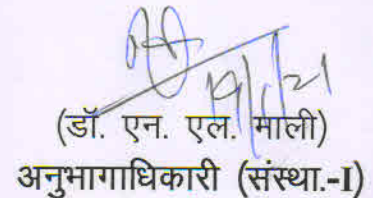 19/1/21
(डॉ. एन. एल. माली)
अनुभागाधिकारी (संस्था.-I)